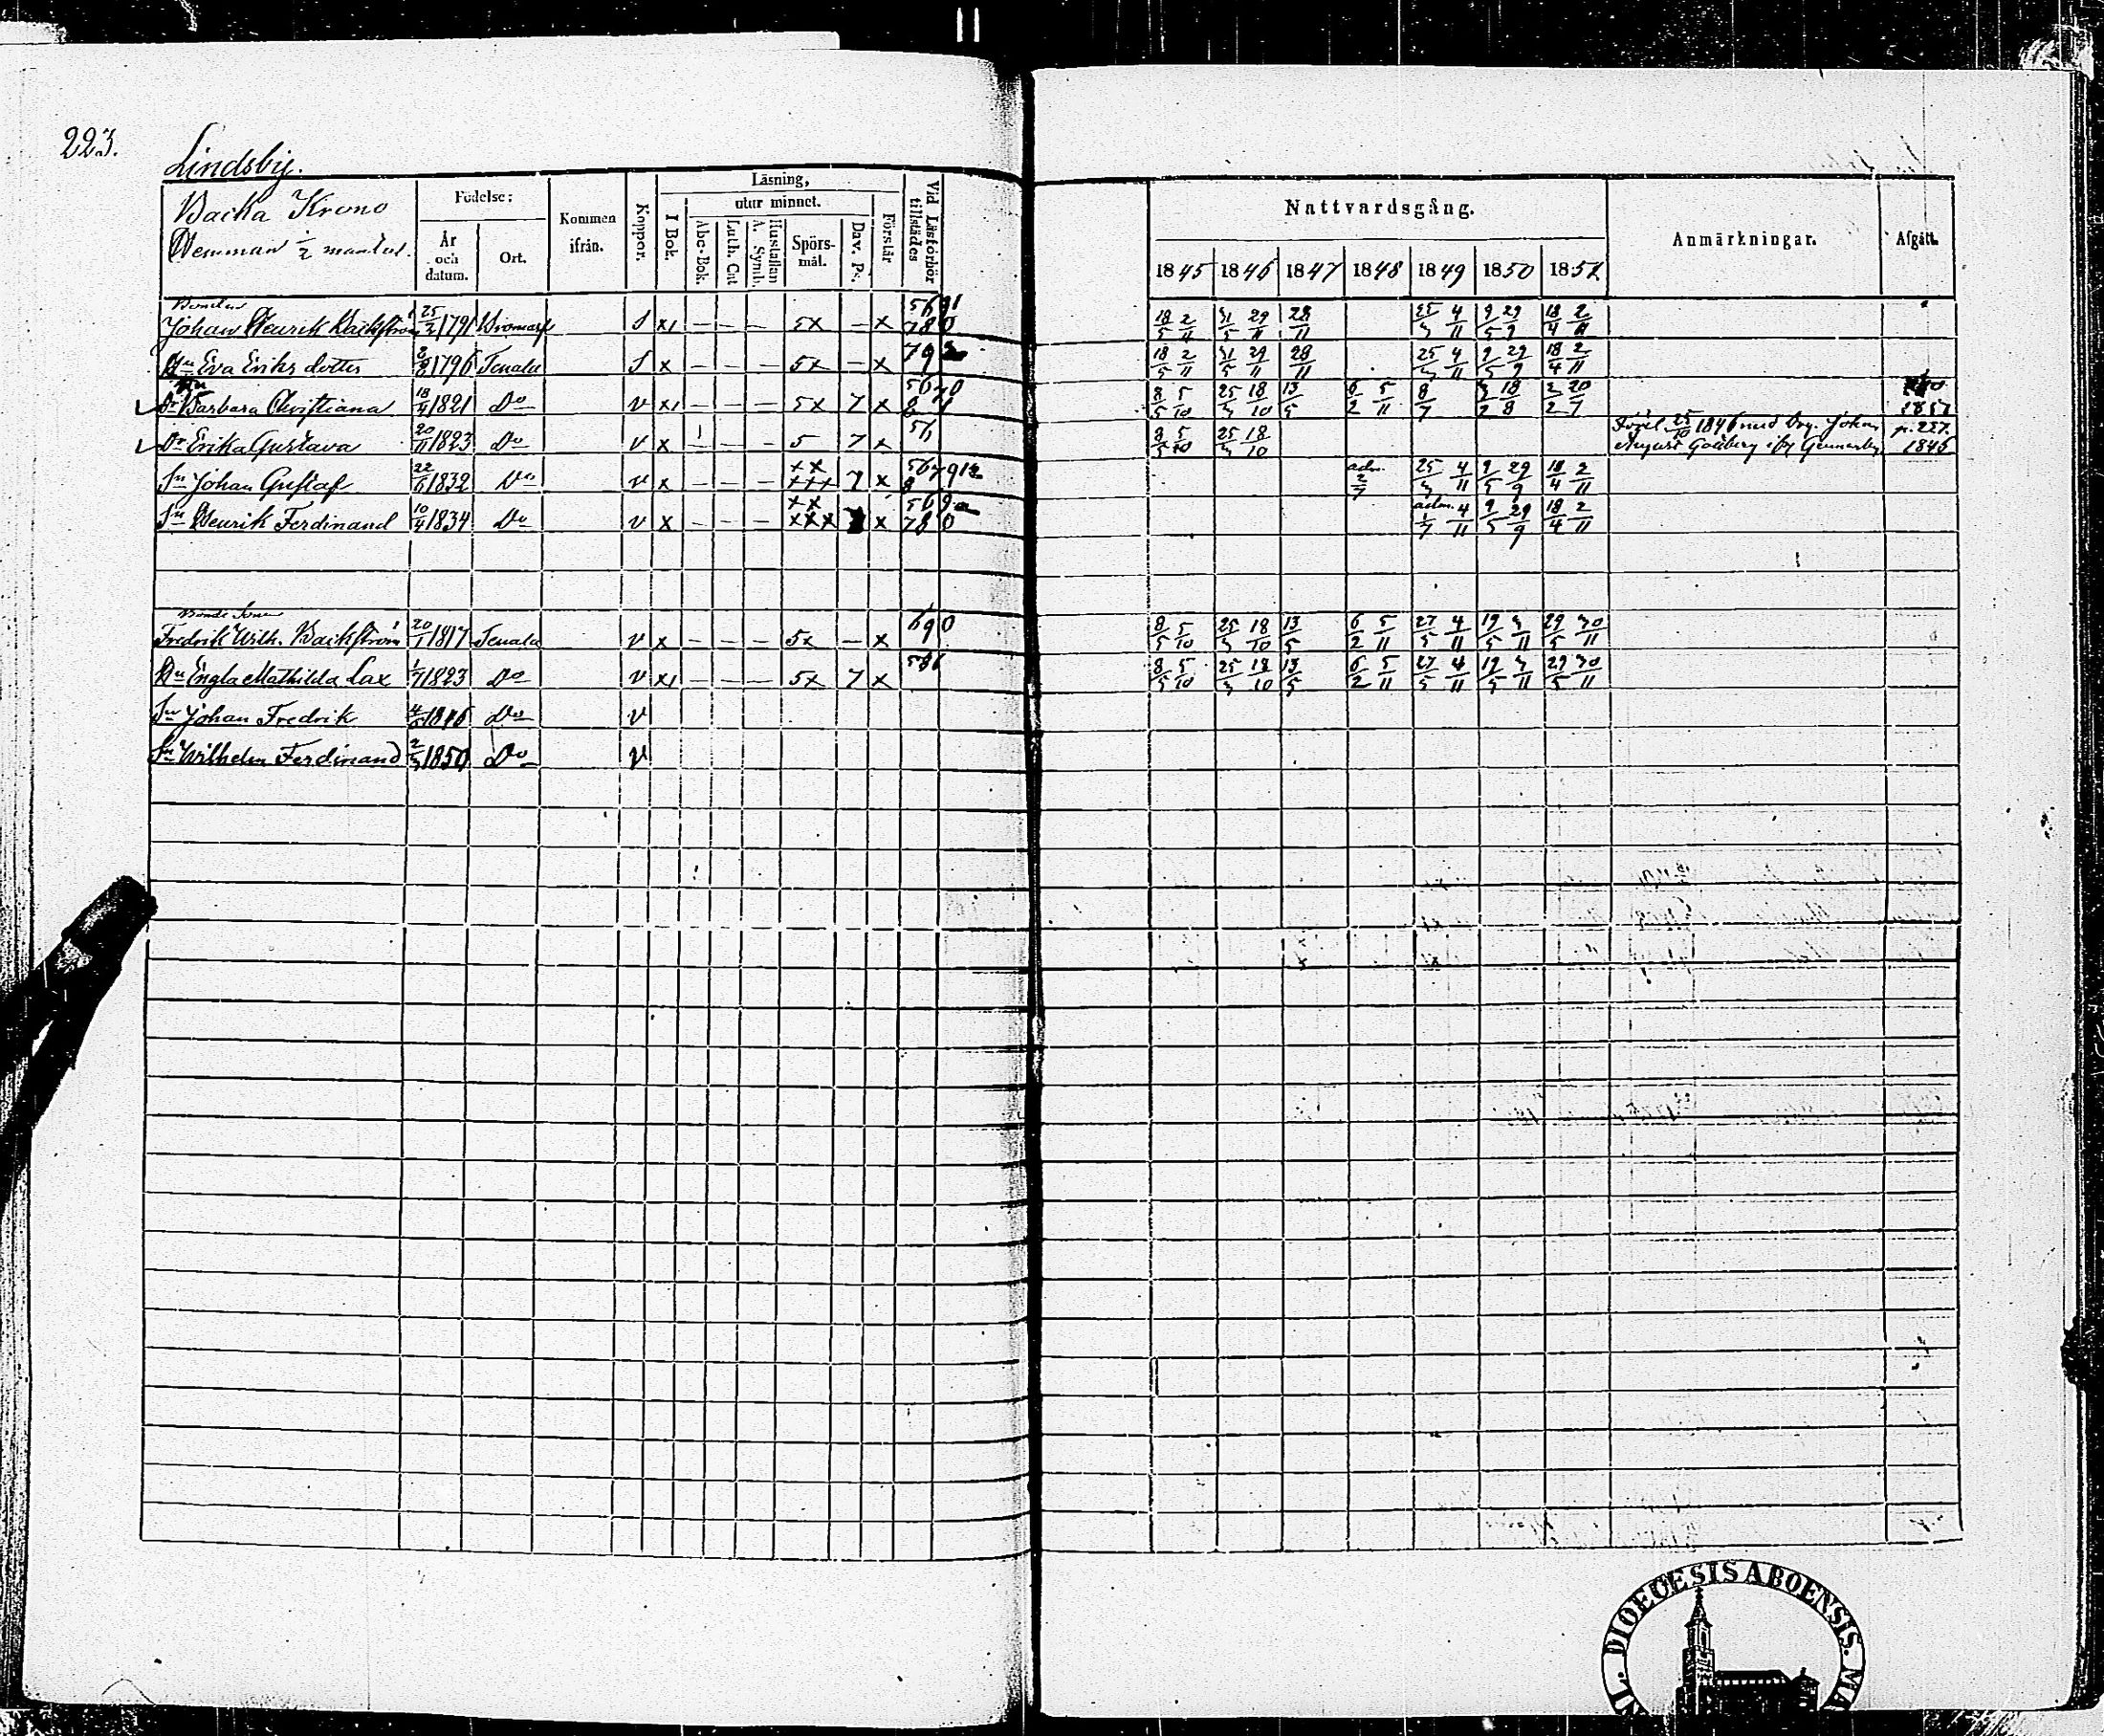 223.
Lindsby.
Backa Krono
Hemman 1/2 mantal.
Födelse:
År och datum.
Ort.
Kommen ifrån.
Koppor.
Läsning,
utur minnet.
I Bok.
Abc-Bok.
Luth. Cat
Hustaflan A. Symb.
Spörsmål.
Dav. Ps.
Förstår
Vid Läsförhör tillstädes
Nattvardsgång.
1845 1846 1847 1848 1849 1850 1851
Anmärkningar.
Afgått.
Bonden
Johan Henrik Backström 25/2 1791 Bromarf S x1 – – – 5x – x 18/5 2/11 28/11 25/3 4/11 9/5 29/9 18/4 2/11
Hu Eva Eriksdotter 1796 Tenala S x – – – 5x – x 18/5 2/11 31/5 29/11 28/11 25/3 4/11 9/5 29/9 18/4 2/11
Dr Barbara Christiana 18/4 1821 Do v x1 – – – 5x 7 x 8/5 5/10 25/3 18/10 13/5 6/2 5/11 8/7 3/2 18/8 2/2 20/7 1851
Dr Erika Gustava 20/11 1823 Do v x – – – 5 7 x 8/5 5/10 25/3 18/10 1846 med Johan p. 237.
August i by Gennarby 1846
Sn Johan Gustaf 22/6 1832 Do v x – – – 7 x adm. 2/7 25/3 4/11 9/5 29/9 18/4 2/11
Sn Henrik Ferdinand 10/4 1834 Do v x – – – x adm. 1/7 4/11 9/5 29/9 18/4 2/11
Bonde Sonen
Fredrik Wilh. Backström 20/1 1817 Tenala v x – – – 5x – x 690 8/5 5/10 25/3 18/10 13/5 6/2 5/11 27/5 4/11 19/5 3/11 29/5 30/11
Hu Engla Mathilda Lax 1/7 1823 Do v x1 – – – 5x 7 x 8/5 5/10 25/3 18/10 13/5 6/2 5/11 27/5 4/11 19/5 3/11 29/5 30/11
Sn Johan Fredrik 1846 Do v
Sn Wilhelm Ferdinand 2/3 1850 Do v
DIOECESIS ABOENSIS.